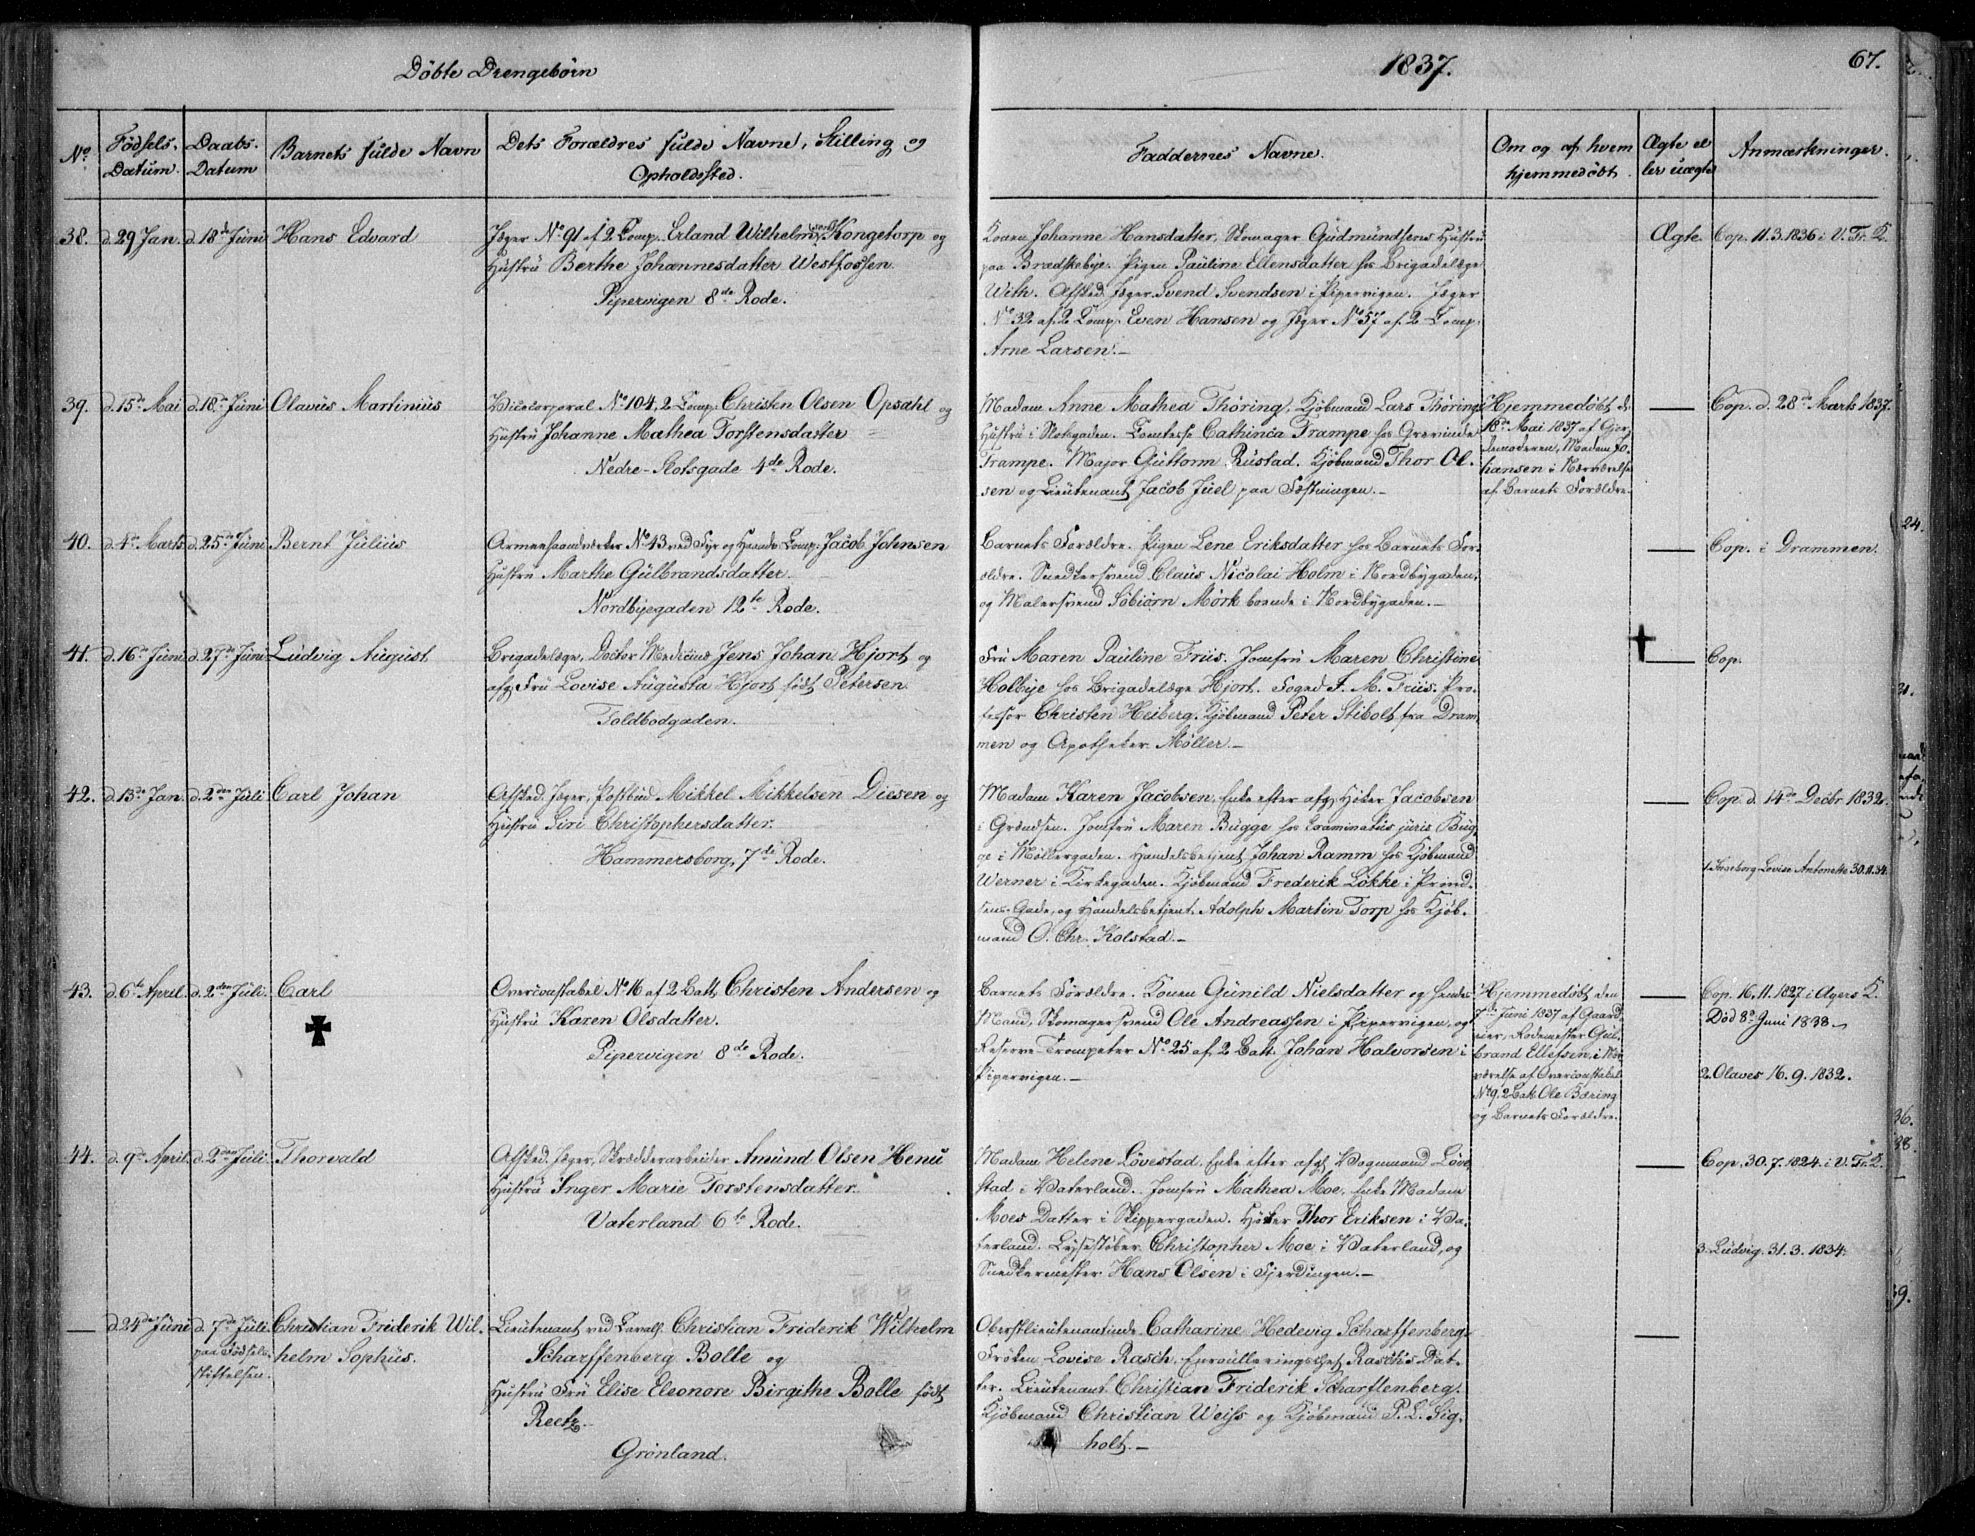 Döbte Drengebörn
1837.
67.
No.
Födsels-Datum.
Daabs-Datum
Barnets fulde Navn
Dets Forældres fulde Navne, Stilling og Opholdssted.
Faddernes Navne.
Om og af hvem hjemmedöbt.
Ægte eller uægte
Anmærkninger.
38. d. 29 Jan. d. 18de Juni Hans Edvard
Jæger No 91 af 2 Comp. Erland Wilhelm Kongetorp og
Hustru Berthe Johannesdatter Westfossen.
Pipervigen 8de Rode.
Konen Johanne Hansdatter, Skomager Gudmundsens Hustru
paa Brædskebye. Pigen Pauline Ellensdatter hos Brigadelæge
With. Afsked. Jæger Svend Svendsen i Pipervigen. Jæger
No 32 af 2 Comp. Even Hansen og Jæger No 57 af 2 Comp.
Arne Larsen.—
Ægte
Cop. 11.3.1836 i V. Fr. K.
39. d. 15de Mai d. 18de Juni Olavus Martinius
Vicecorporal No 104, 2 Comp. Christen Olsen Opsahl og
Hustru Johanne Mathea Torstensdatter
Nedre-Slotsgade 4de Rode.
Madam Anne Mathea Thöring, Kjöbmand Lars Thörings
Hustru i Slotsgaden. Comtesse Cathinca Trampe hos Grevinde
Trampe. Major Guttorm Rustad. Kjöbmand Thor Ol-
sen og Lieutenant Jacob Juel paa Fæstningen.—
Hjemmedöbt d.
18de Mai 1837 af Gjor-
demoderen, Madam Jo-
hansen i Nærværelse
af Barnets Forældre.
—
Cop. d. 28de Marts 1837.
40. d. 4de Marts d. 25de Juni Bernt Julius
Armeehaandværker No 43 ved Fyr og Haandv. Comp. Jacob Johnsen
Hustru Marthe Gulbrandsdatter.
Nordbyegaden 12te Rode.
Barnets Forældre. Pigen Lene Eriksdatter hos Barnets For-
ældre. Snedkersvend Claus Nicolai Holm i Nordbygaden,
og Malersvend Söbiörn Mörk boende i Nordbygaden.—
—
Cop. i Drammen.
41. d. 16de Juni d. 27de Juni Ludvig August
Brigadelæge, Doctor Medicinæ Jens Johan Hjort og
afg. Fru Lovise Augusta Hjort födt Petersen.
Toldbodgaden.
Fru Maren Pauline Friis. Jomfru Maren Christine
Holbye hos Brigadelæge Hjort. Foged F. M. Friis. Pro-
fessor Christen Heiberg. Kjöbmand Peter Stibolt fra Dram-
men og Apotheker Möller.—
—
Cop.
42. d. 13de Jan. d. 2den Juli Carl Johan
Afsked. Jæger, Postbud Mikkel Mikkelsen Diesen og
Hustru Siri Christophersdatter.
Hammersborg, 7de Rode.
Madam Karen Jacobsen, Enke efter afg. Höker Jacobsen
i Grændsen. Jomfru Maren Bugge hos Examinatus juris Bug-
ge i Möllergaden. Handelsbetjent Johan Ramm hos Kjöbmand
Werner i Kirkegaden. Kjöbmand Frederik Lökke i Prind-
sens-Gade, og Handelsbetjent Adolph Martin Torp hos Kjöb-
mand O. Chr. Kolstad.—
—
Cop. d. 14de Decbr 1832.
1. Ingeborg Lovise Antonette 30.11.34.
43. d. 6te April. d. 2den Juli. Carl
Overconstabel No 16 af 2 Batt. Christen Andersen og
Hustru Karen Olsdatter.
Pipervigen 8de Rode.
Barnets Forældre. Konen Gunild Nielsdatter og hendes
Mand, Skomagersvend Ole Andreassen i Pipervigen, og
Reserve-Trompeter No 25 af 2 Batt. Johan Halvorsen i
Pipervigen.—
Hjemmedöbt den
7de Juni 1837 af Gaard-
eier, Rodemester Gul-
brand Ellefsen, i Nær-
værelse af Overconstabel
No 9, 2 Batt. Ole Bæring
og Barnets Forældre.
—
Cop. 16.11.1827 i Agers K.
Död 8de Juni 1838
2. Olaves 16.9.1832.
44. d. 9de April. d. 2den Juli. Thorvald
Afsked. Jæger, Skrædderarbeider Amund Olsen Henu
Hustru Inger Marie Torstensdatter.
Vaterland 6te Rode.
Madam Helene Lövestad, Enke efter afgt. Vognmand Löve-
stad i Vaterland. Jomfru Mathea Moe, Enke Madam
Moes Datter i Skippergaden. Höker Thor Eriksen i Va-
terland. Lysestöber Christopher Moe i Vaterland, og
Snedkermester Hans Olsen i Fjerdingen.—
—
Cop. 30.7.1824 i V. Fr. K.
3. Ludvig 31.3.1834.
— d. 24de Juni d. 7de Juli paa Födselsstiftelsen. Christian Friderik Wil-
helm Sophus.
Lieutenant ved Cavall. Christian Friderik Wilhelm
Scharffenberg Bolle og
Hustru Fru Elise Eleonore Birgithe Bolle födt
Reetz.
Grönland.
Oberstlieutenantinde Catharine Hedevig Scharffenberg.
Fröken Lovise Rasch, Enroulleringschef Rasch's Dat-
ter. Lieutenant Christian Friderik Scharffenberg.
Kjöbmand Christian Weiss og Kjöbmand P. L. Sig-
holt.—
—